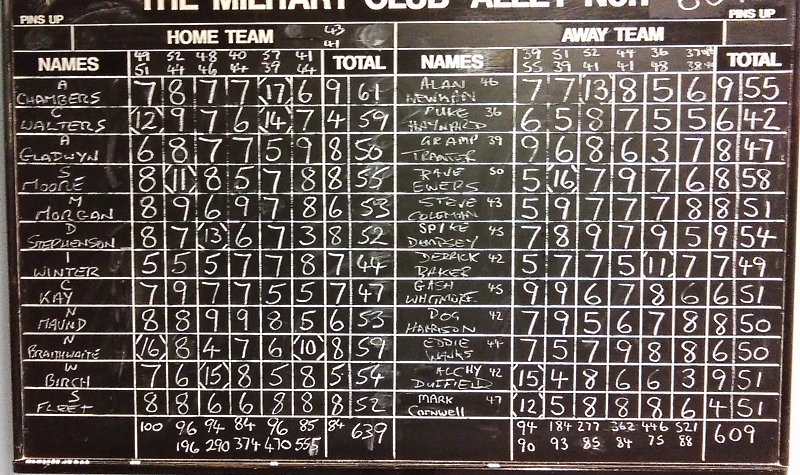 THE MILITARY CLUB ALLEY NO.
PINS UP PINS UP
HOME TEAM 43 41 AWAY TEAM
NAMES 49 52 48 40 57 41 TOTAL NAMES 39 51 52 44 36 TOTAL
51 44 46 44 39 44 55 39 41 41 48
A CHAMBERS 7 8 7 7 17 6 9 61 ALAN NEWMAN 46 7 7 13 8 5 6 9 55
C WALTERS 12 9 7 6 14 7 4 59 36 6 5 8 7 5 5 6 42
A GLADWYN 6 8 7 7 5 9 8 50 GRAMP TRANTER 39 9 6 8 6 3 7 8 47
S MOORE 8 11 8 5 7 8 8 55 DAVE EWERS 50 5 16 7 9 7 6 8 58
M MORGAN 8 9 6 9 7 8 6 53 STEVE COLEMAN 43 5 9 7 7 7 8 8 51
D STEPHENSON 8 7 13 6 7 3 8 52 SPIKE DEMPSEY 45 7 8 9 7 9 5 9 54
I WINTER 5 5 5 7 7 8 7 44 DERRICK BAKER 42 5 7 7 5 11 7 7 49
C KAY 7 9 7 7 5 5 7 47 GASH WHITMORE 45 9 9 6 7 8 6 6 51
N MAUND 8 8 9 9 8 5 6 53 DOG HARRISON 42 7 9 5 6 7 8 8 50
N BRAITHWAITE 16 8 4 7 6 10 8 59 EDDIE WINKS 44 7 5 7 9 8 8 6 50
W BIRCH 7 6 15 8 5 8 5 54 ALCHY DUFFIELD 42 15 4 8 6 6 3 9 51
S FLEET 8 8 6 6 8 8 8 52 MARK Cornwell 47 12 5 8 8 8 6 4 51
100 96 94 84 96 85 84 639 94 184 277 362 446 521 609
196 290 374 470 555 90 93 85 84 75 88